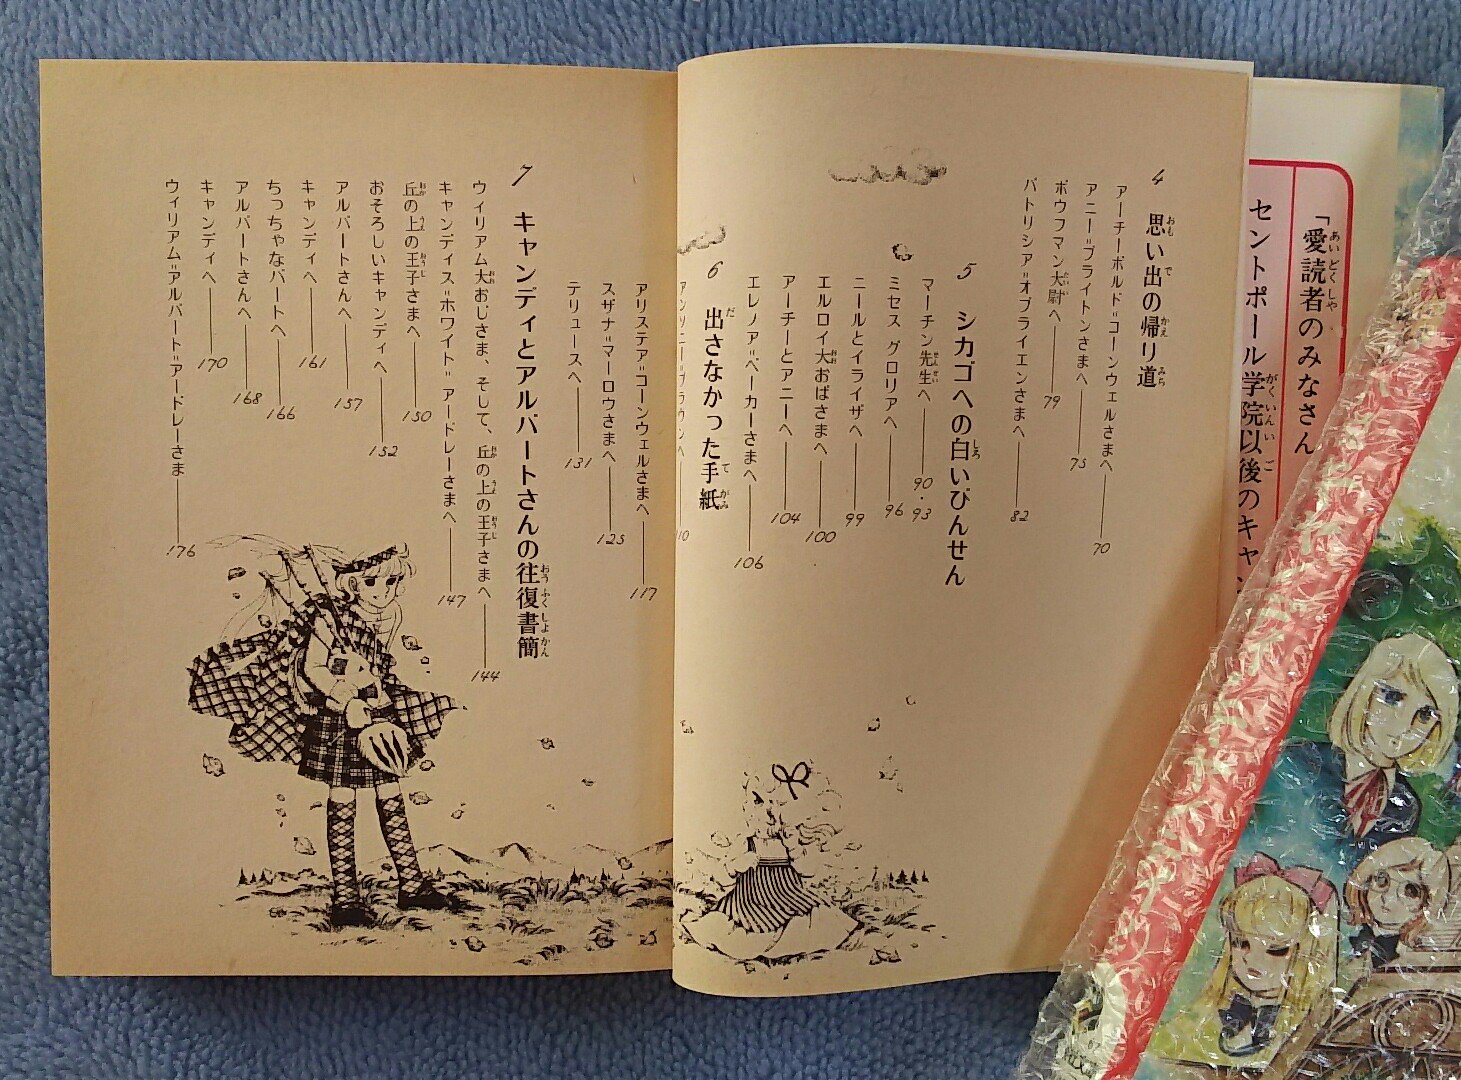 「愛読者のみなさん
セントポール学院以後のキャン
4 思い出の帰り道
アーチーボルド＝コーンウェルさまへ――70
アニー＝ブライトンさまへ――75
ボウフマン大尉へ――79
パトリシア＝オブライエンさまへ――82
5 シカゴへの白いびんせん
マーチン先生へ――90・93
ミセス グロリアへ――96
ニールとイライザへ――99
エルロイ大おばさまへ――100
アーチーとアニーへ――104
エレノア＝ベーカーさまへ――106
6 出さなかった手紙
アンソニー＝ブラウンへ――110
アリステア＝コーンウェルさまへ――117
スザナ＝マーロウさまへ――125
テリュースへ――131
7 キャンディとアルバートさんの往復書簡
ウィリアム大おじさま、そして、丘の上の王子さまへ――144
キャンディス＝ホワイト＝アードレーさまへ――147
丘の上の王子さまへ――150
おそろしいキャンディへ――152
アルバートさんへ――157
キャンディへ――161
ちっちゃなバートへ――166
アルバートさんへ――168
キャンディへ――170
ウィリアム＝アルバート＝アードレーさま――176